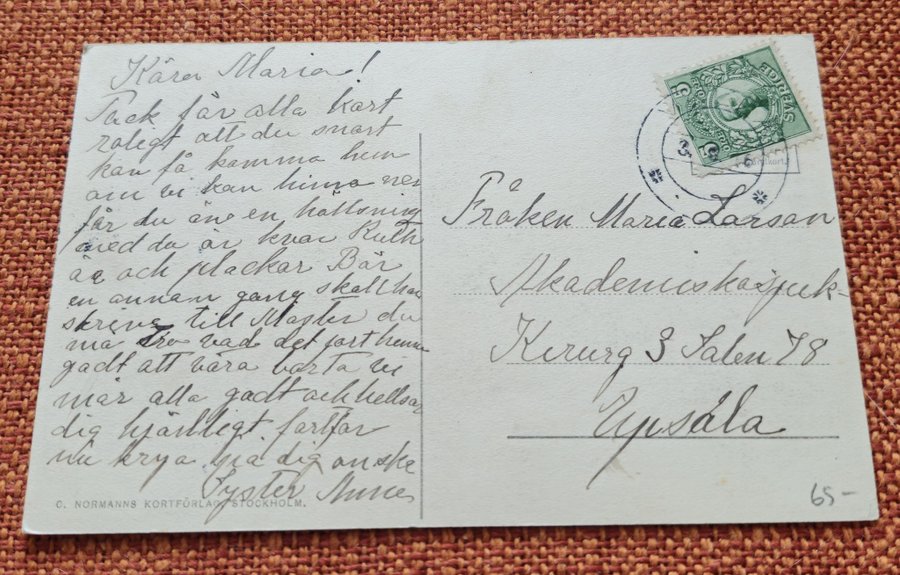 Kära Maria!
Tack för alla kort
roligt att du snart
kan få komma hem
om vi kan hinna ner
för du än en hälsning
med da är kvar Ruth
är och plackar Bär
en annan gang skall han
skrive till Moster du
må tro vad det gort henne
godt att våra borta vi
mår alla godt och hellsar
dig hjärtligt fortfar
nu krya på dig onske
Syster Anna
C. NORMANNS KORTFÖRLAG, STOCKHOLM.
SVERIGE
5 5
Fröken Maria Larson
Akademiska sjuk-
Kirurg 3 Salen 78
Upsala
65-